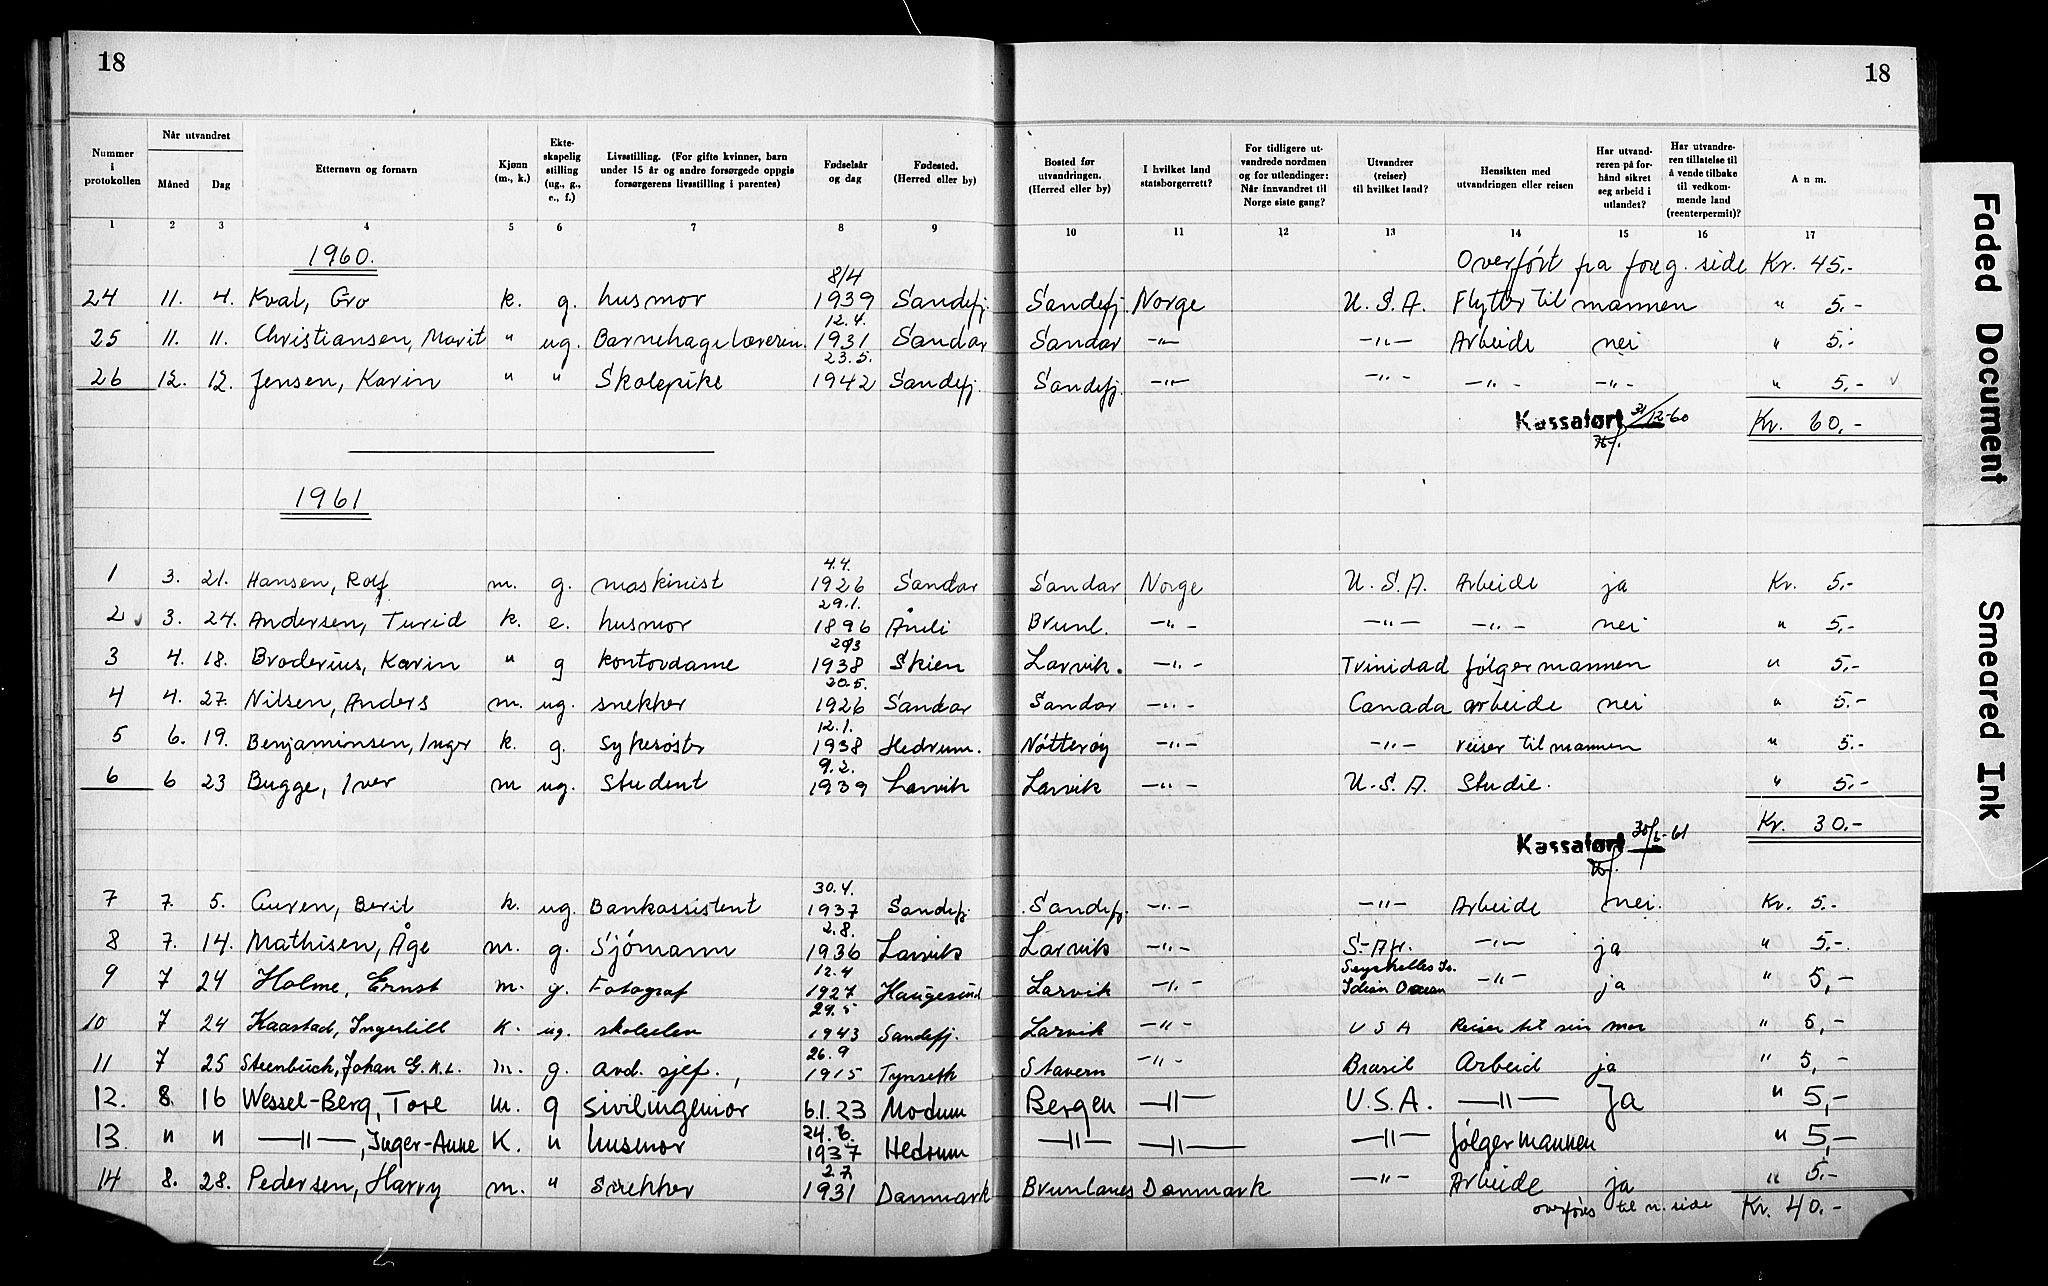 18
18
Nummer i protokollen
Når utvandret
Måned
Dag
Etternavn og fornavn
Kjønn (m., k.)
Ekteskapelig stilling (ug., g., e., f.)
Livsstilling. (For gifte kvinner, barn under 15 år og andre forsørgede oppgis forsørgerens livsstilling i parentes)
Fødselsår og dag
Fødested. (Herred eller by)
Bosted før utvandringen. (Herred eller by)
I hvilket land statsborgerrett?
For tidligere utvandrede nordmen og for utlendinger: Når innvandret til Norge siste gang?
Utvandrer (reiser) til hvilket land?
Hensikten med utvandringen eller reisen
Har utvandreren på forhånd sikret seg arbeid i utlandet?
Har utvandreren tillatelse til å vende tilbake til vedkommende land (reenterpermit)?
Anm.
1 2 3 4 5 6 7 8 9 10 11 12 13 14 15 16 17
1960. Overført fra foreg. side Kr. 45.-
24 11. 4. Kval, Gro k. g. husmor 8/4 1939 Sandefj. Sandefj. Norge U.S.A. Flytter til mannen " 5.-
25 11. 11. Christiansen, Marit " ug. Barnehagelærerin. 12.4. 1931 Sandar Sandar -"- -"- Arbeide nei " 5.-
26 12. 12. Jensen, Karin " " Skolepike 23.5. 1942 Sandefj. Sandefj. -"- -"- -"- -"- " 5.-
Kassaført 31/12-60 Kr. 60,-
1961
1 3. 21. Hansen, Rolf m. g. maskinist 4.4. 1926 Sandar Sandar Norge U.S.A. Arbeide ja Kr. 5.-
2 3. 24. Andersen, Turid k. e. husmor 29.1. 1896 Brunl. -"- -"- -"- nei " 5.-
3 4. 18. Broderius, Karin " g kontordame 29/3 1938 Skien Larvik. -"- Trinidad følger mannen " 5.-
4 4. 27. Nilsen, Anders m. ug. snekker 20.5. 1926 Sandar Sandar -"- Canada arbeide nei " 5.-
5 6. 19. Benjaminsen, Inger k. g. Sykesøster 12.1. 1938 Hedrum. Nøtterøy -"- -"- reiser til mannen " 5.-
6 6 23 Bugge, Iver m ug. Student 9.2. 1939 Larvik Larvik -"- U.S.A. Studie. " 5.-
Kr. 30.-
Kassaført 30/6-61
7 7. 5. Auren, Berit k. ug. Bankassistent 30.4. 1937 Sandefj. Sandefj. -"- -"- Arbeide nei. Kr. 5.-
8 7. 14. Mathisen, Åge m. g. Sjømann 2.8. 1936 Larvik Larvik -"- S-Afr. -"- ja " 5.-
9 7 24 Holme, Ernst m. g. Fotograf 12.4 1927 Haugesund Larvik -"- Seychelles Is. Idian Ocean -"- ja " 5,-
10 7 24 Kaastad, Ingerlill K. ug. skoleelev 29.5 1943 Sandefj. Larvik -"- USA Reiser til sin mor " 5,-
11 7 25 Steenbuch, Johan G. K.L. m. g. avd. sjef., 26.9 1915 Tynseth Stavern -"- Brasil Arbeid ja " 5,-
12. 8. 16 Wessel-Berg, Tore m. g sivilingeniør 6.1.23 Modum Bergen -"- U.S.A. -"- Ja " 5,-
13. " " -"-, Inger-Anne K. " husmor 24.6. 1937 Hedrum -"- -"- -"- følger mannen " 5,-
14 8. 28. Pedersen, Harry m. " Snekker 2.7 1931 Danmark Brunlanes Danmark -"- Arbeide ja " 5.-
overføres til n. side Kr. 40.-
Faded Document
Smeared Ink